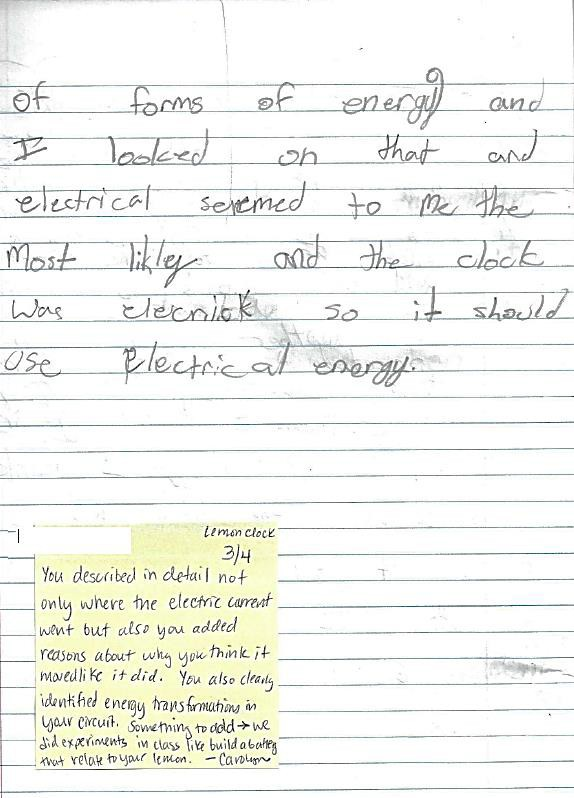 of forms of energy and
I looked on that and
electrical seremed to me the
Most likly and the clock
was elecnitk so it should
Use Electrical energy.
Lemon clock
3/4
You described in detail not
only where the electric current
went but also you added
reasons about why you think it
moved like it did. You also clearly
identified energy transformations in
your circuit. Something to add → we
did experiments in class like build a battery
that relate to your lemon. - Carolyn